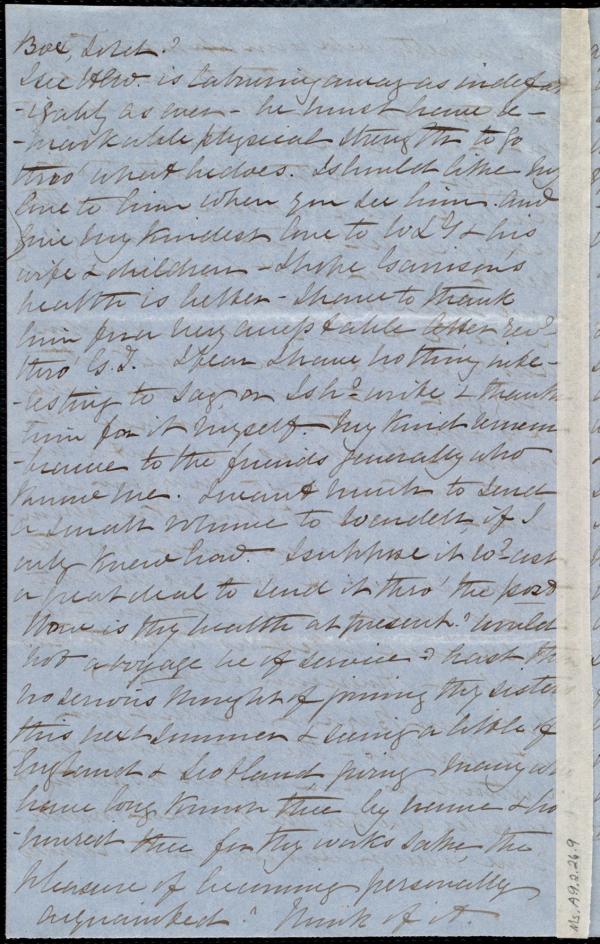 Box, Lotel?
I see H.C.W. is labouring away as indefat
-igably as ever - he must have re-
-markable physical strength to go
thro' what he does. I should like my
love to him when you see him and
give my kindest love to W L G & his
wife & children - I hope Garrison's
health is better - I have to thank
him for a very acceptable letter rec.d
thro' G. T. I fear I have nothing inte-
-resting to say or I sh.d write & thank
him for it myself. My kind remem
-brance to the friends generally who
know me. I want much to send
a small volume to Wendell, if I
only knew how. I suppose it w.d cost
a great deal to send it thro' the post
How is thy health at present? would
not a voyage be of service? hast th
no serious thought of joining thy sisters
this next summer & seeing a little of
England & Scotland giving many wh
have long known thee by name & ho
-noured thee for thy work's sake, the
pleasure of becoming personally
acquainted? Think of it.
Ms. A.9.2.26.9